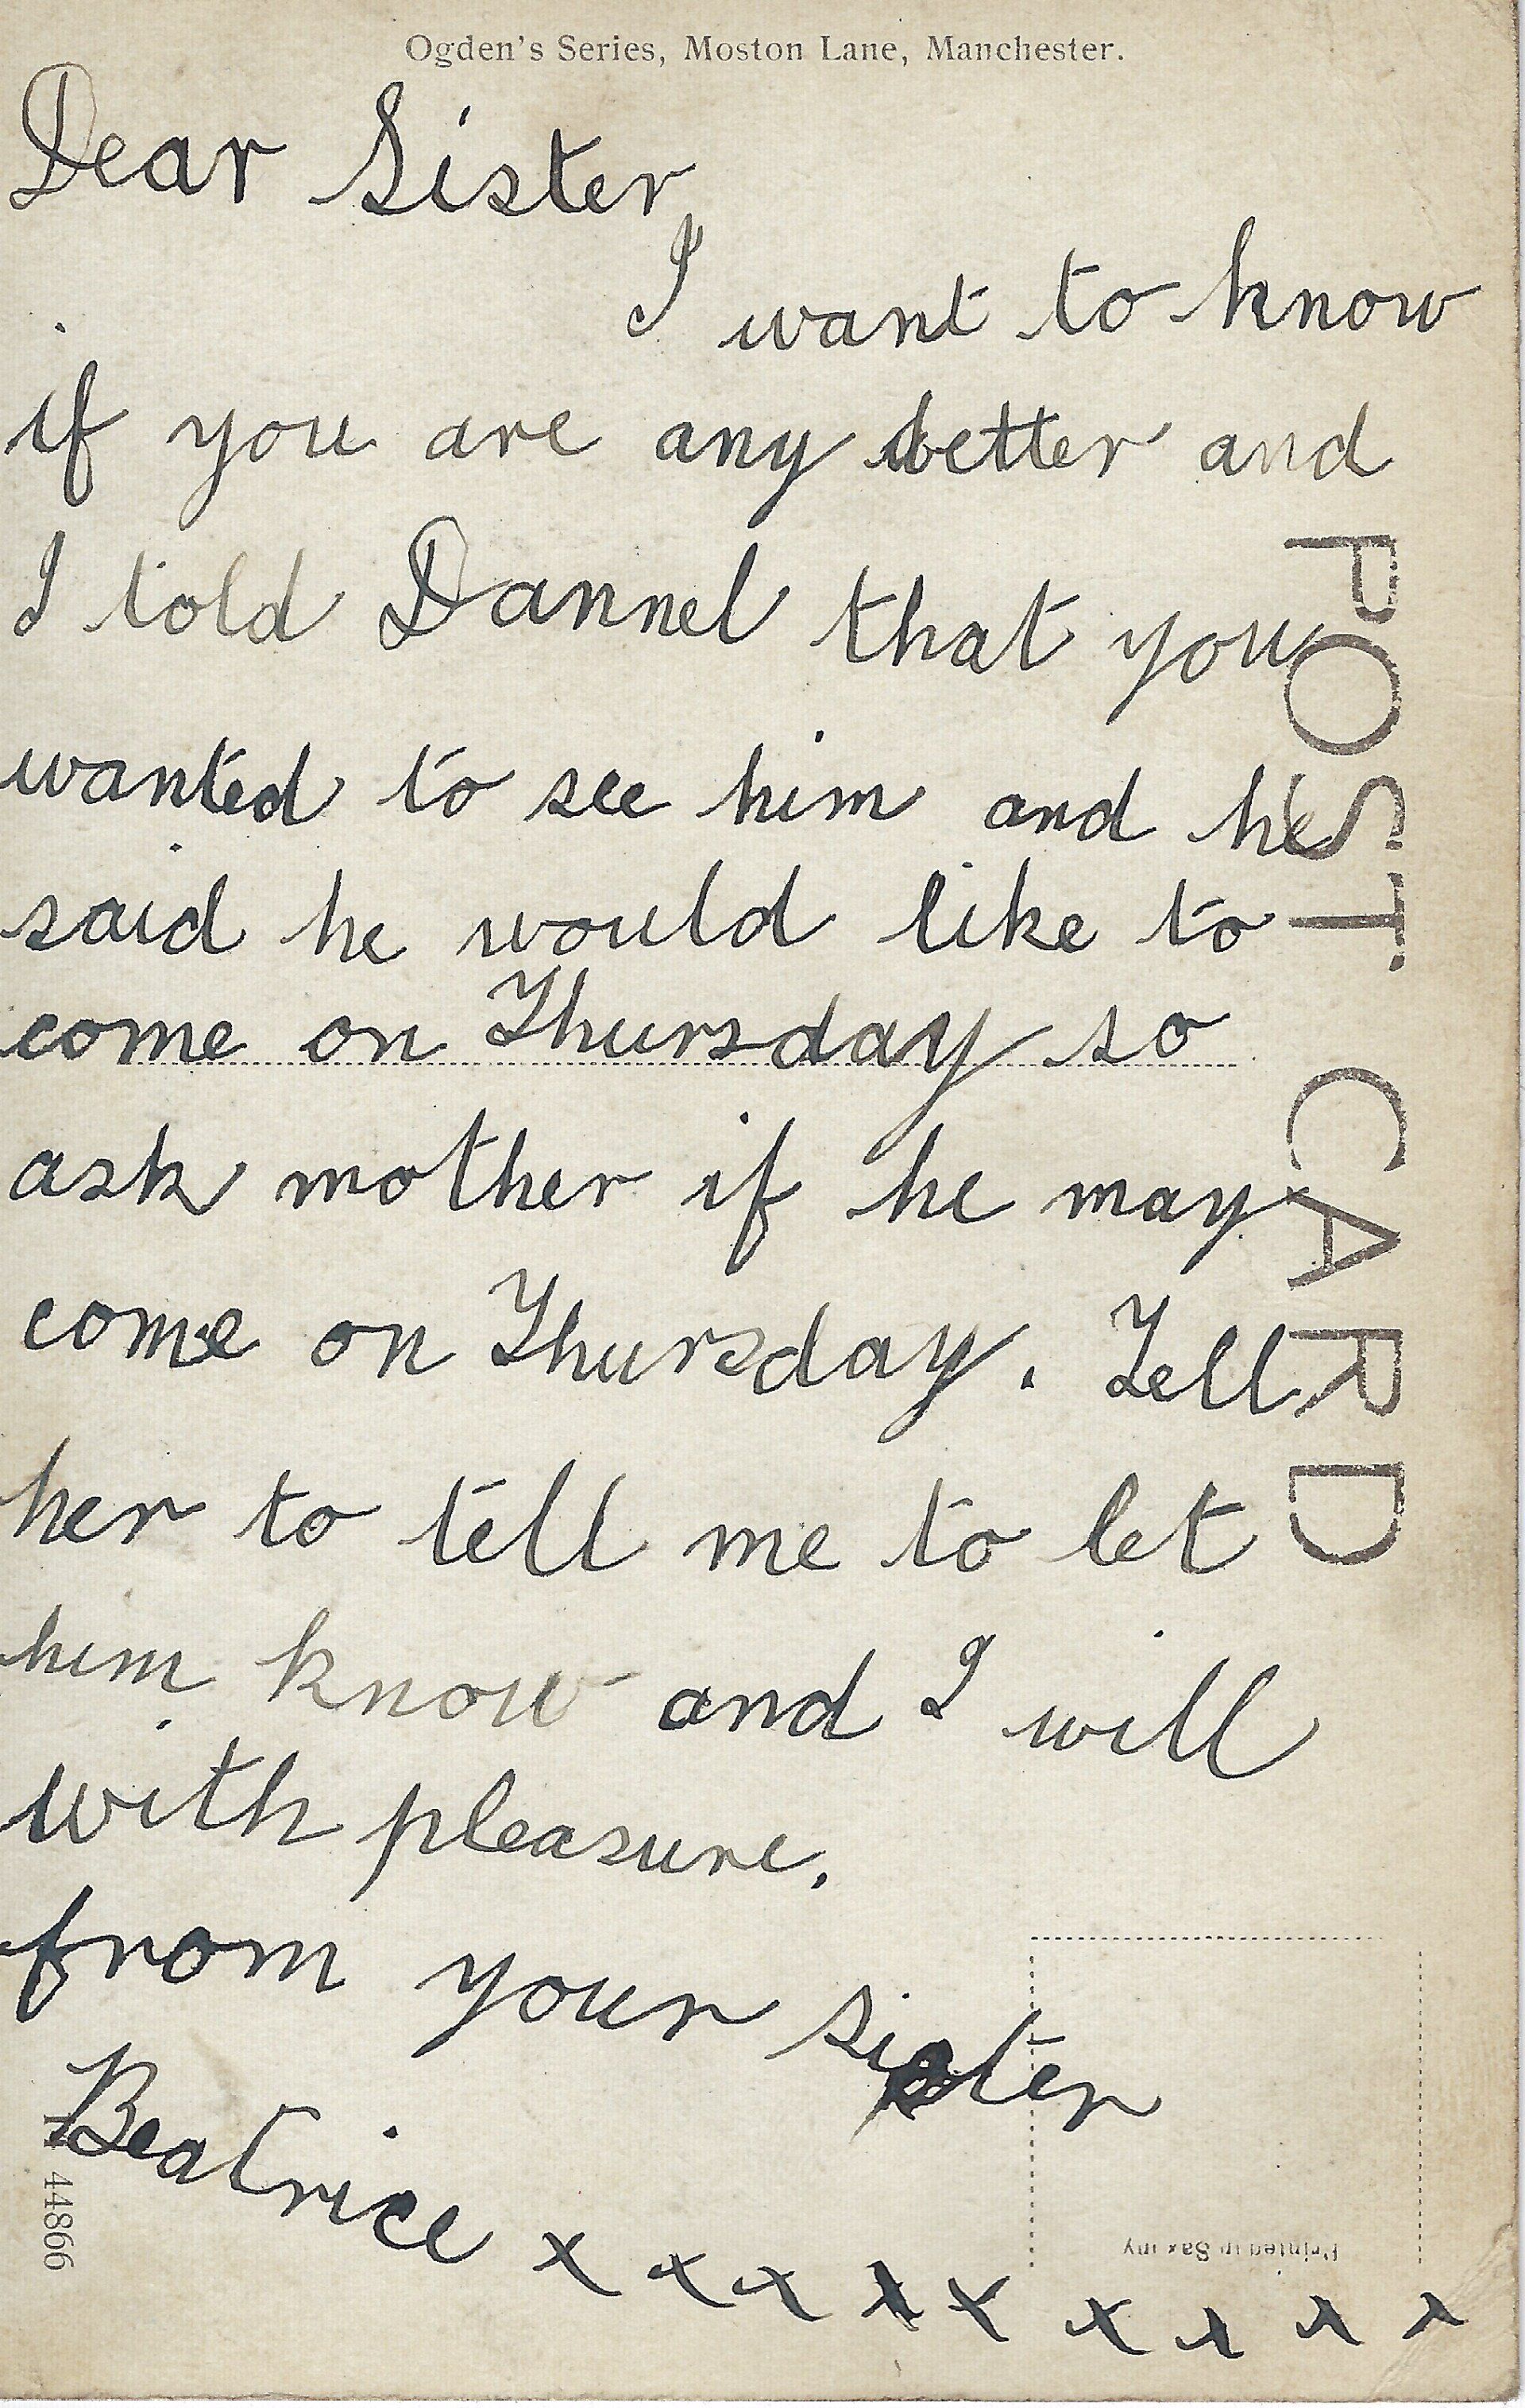 Ogden's Series, Moston Lane, Manchester.
Dear Sister,
I want to know
if you are any better and
I told Dannel that you
wanted to see him and he
said he would like to
come on Thursday so
ask mother if he may
come on Thursday. Tell
her to tell me to let
him know and I will
with pleasure.
from your sister
Beatrice x x x x x x x x x
POST CARD
44866
Printed in Saxony